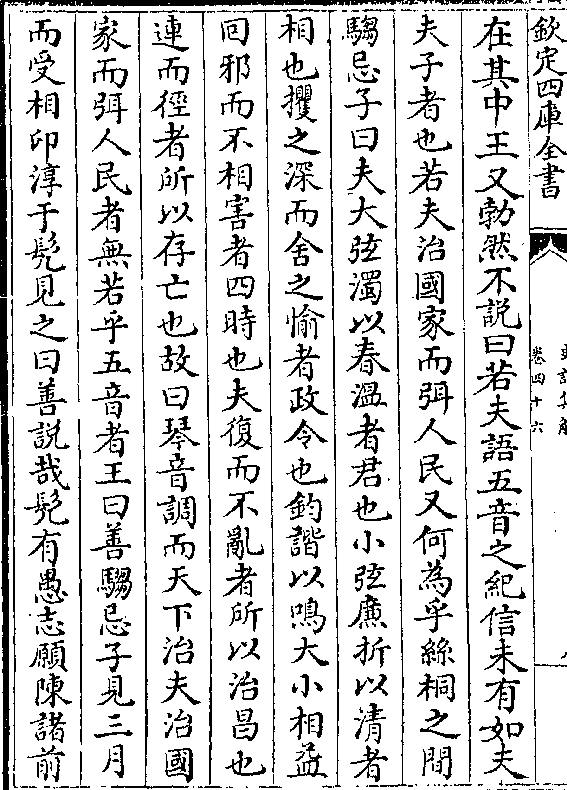 欽定四庫全書
史記集解
卷四十六
在其中王又勃然不説曰若夫語五音之紀信未有如夫
夫子者也若夫治國家而弭人民又何為乎絲桐之間
騶忌子曰夫大弦濁以春溫者君也小弦亷折以清者
相也攫之深而舍之愉者政令也鈞諧以鳴大小相益
回邪而不相害者四時也夫復而不亂者所以治昌也
連而徑者所以存亡也故曰琴音調而天下治夫治國
家而弭人民者無若乎五音者王曰善騶忌子見三月
而受相印淳于髡見之曰善説哉髡有愚志願陳諸前